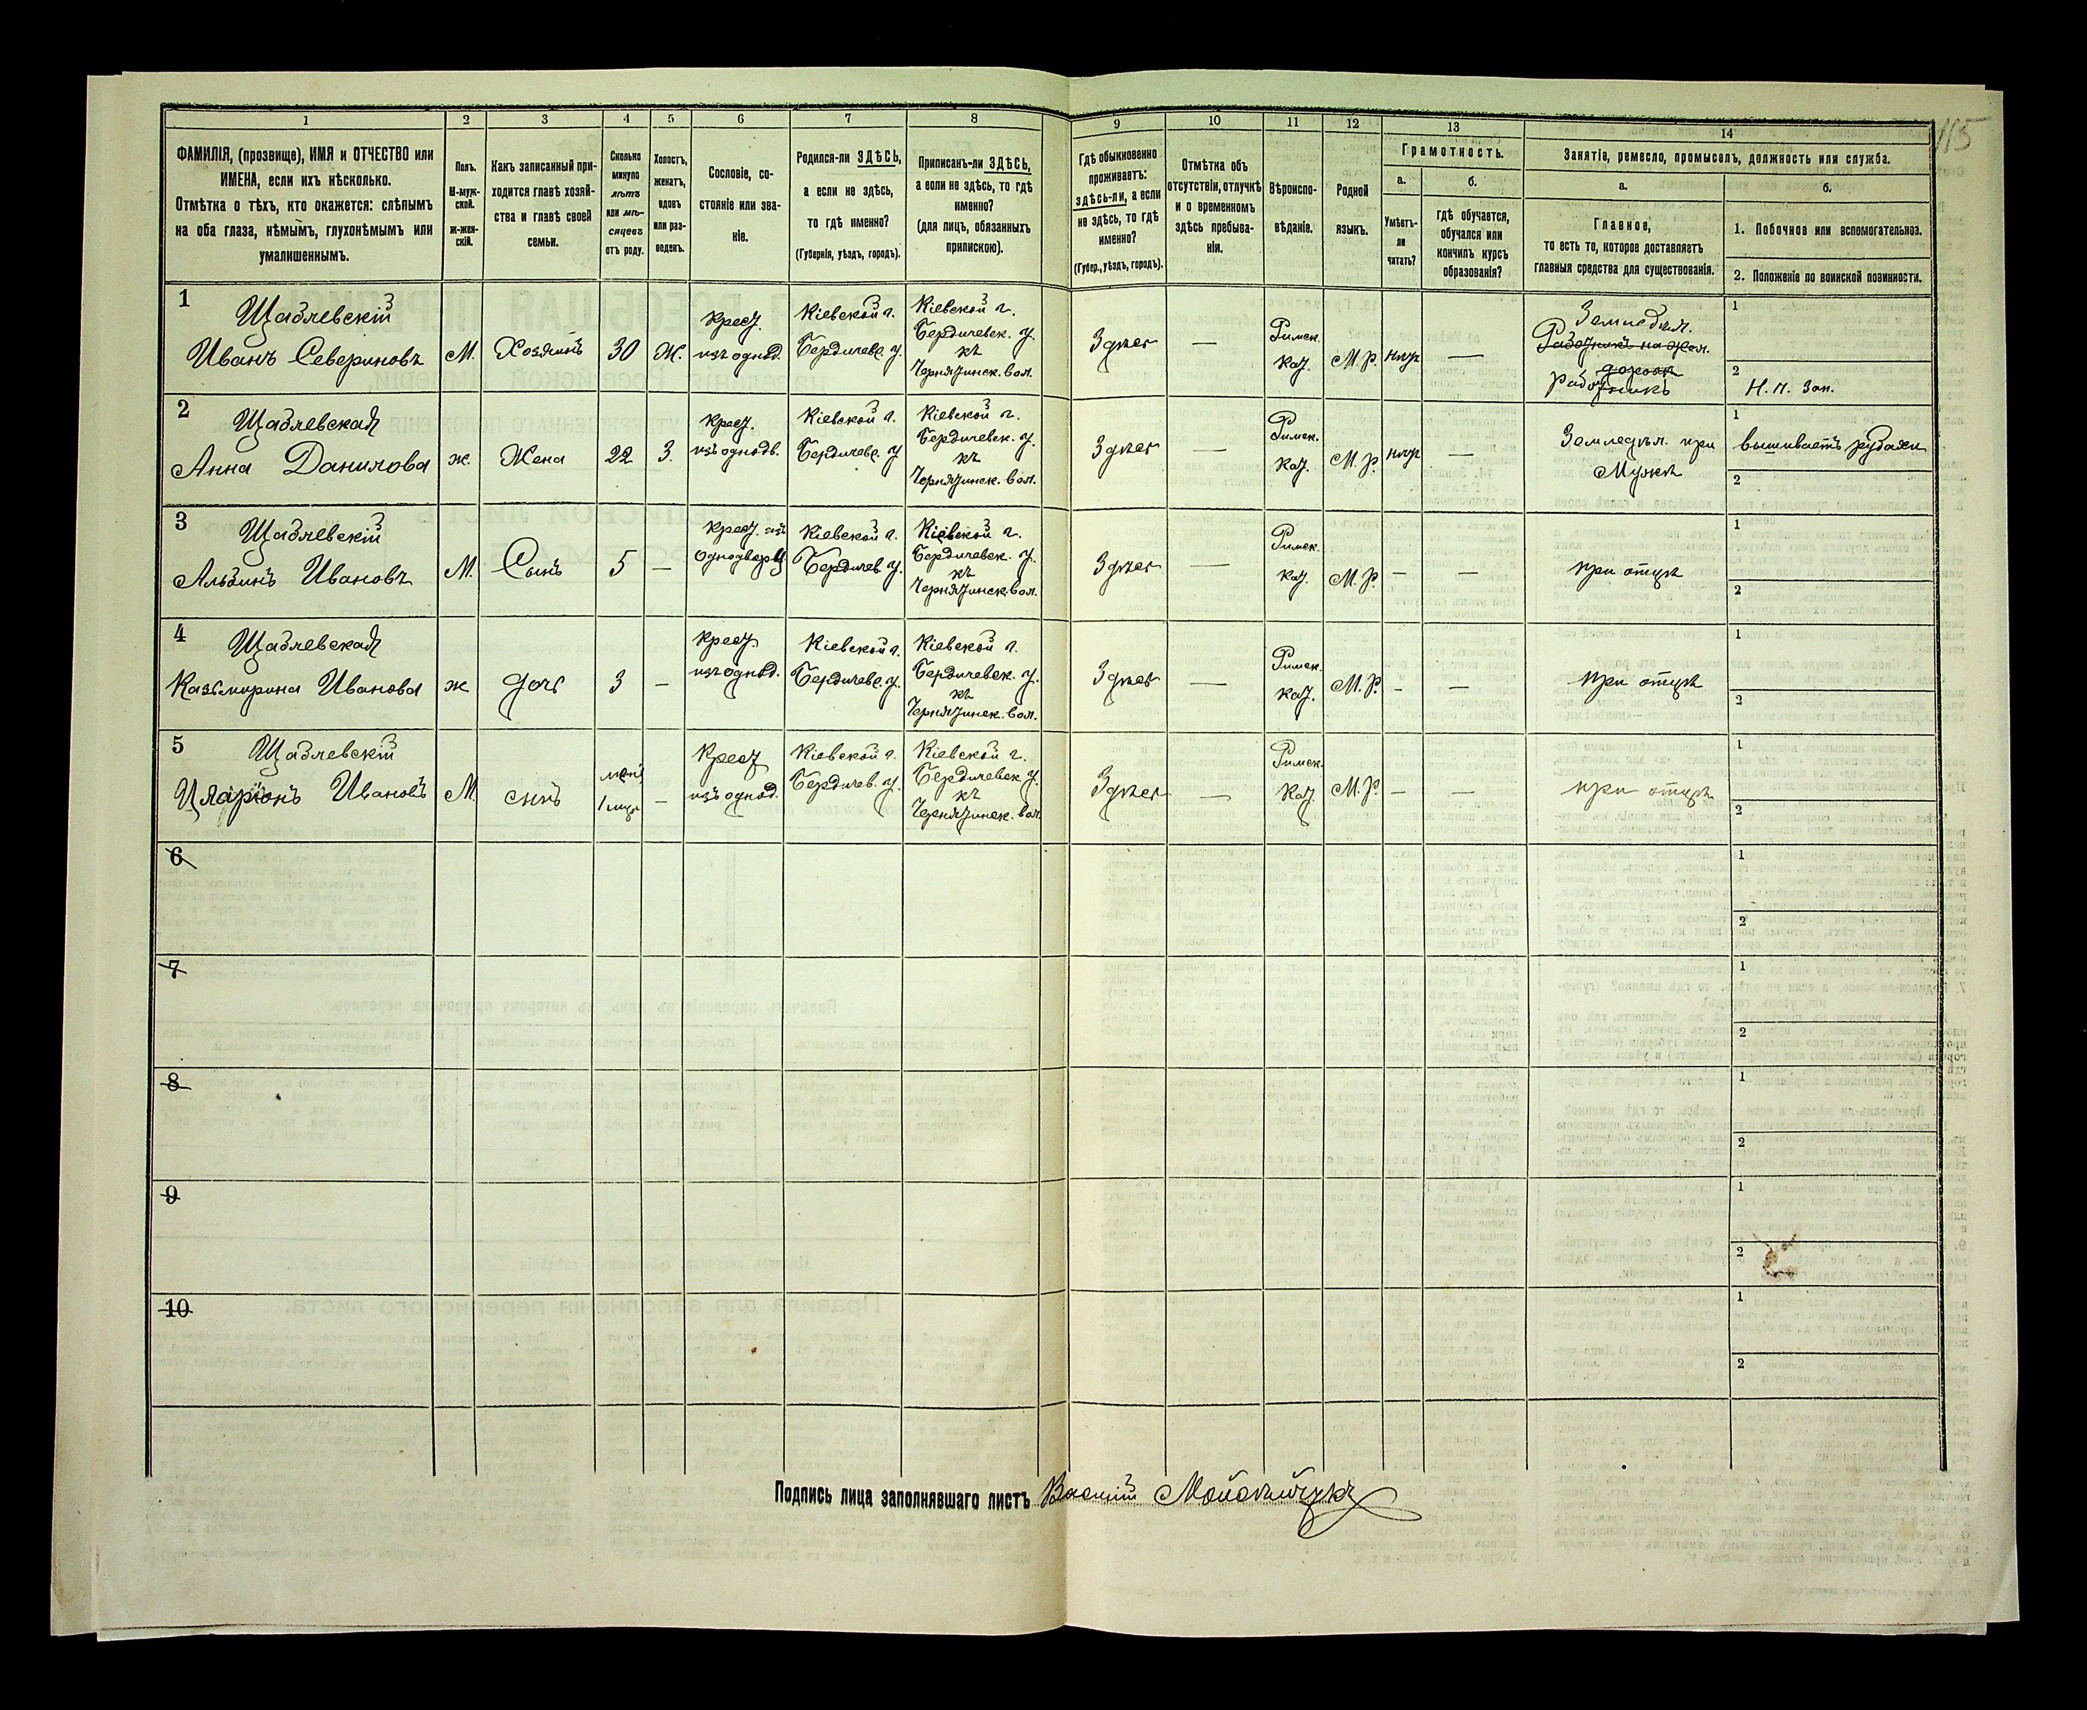 115
1
2
3
4
5
6
7
8
9
10
11
12
13
14
ФАМИЛІЯ, (прозвище), ИМЯ и ОТЧЕСТВО или
ИМЕНА, если ихъ нѣсколько.
Отмѣтка о тѣхъ, кто окажется: слѣпымъ
на оба глаза, нѣмымъ, глухонѣмымъ или
умалишеннымъ.
Полъ.
М-муж-
ской.
Ж-жен-
скій.
Какъ записанный при-
ходится главѣ хозяй-
ства и главѣ своей
семьи.
Сколько
минуло
лѣтъ
или мѣ-
сяцевъ
отъ роду.
Холостъ,
женатъ,
вдовъ
или раз-
веденъ.
Сословіе, со-
стояніе или зва-
ніе.
Родился-ли ЗДѢСЬ,
а если не здѣсь,
то гдѣ именно?
(Губернія, уѣздъ, городъ).
Приписанъ-ли ЗДѢСЬ,
а если не здѣсь, то гдѣ
именно?
(для лицъ, обязанныхъ
припискою).
Гдѣ обыкновенно
проживаетъ:
здѣсь-ли, а если
не здѣсь, то гдѣ
именно?
(Губер., уѣздъ, городъ).
Отмѣтка объ
отсутствіи, отлучкѣ
и о временномъ
здѣсь пребыва-
ніи.
Вѣроиспо-
вѣданіе.
Родной
языкъ.
Грамотность.
а.
Умѣетъ-
ли
читать?
б.
Гдѣ обучается,
обучался или
кончилъ курсъ
образованія?
Занятіе, ремесло, промыселъ, должность или служба.
а.
Главное,
то есть то, которое доставляетъ
главныя средства для существованія.
б.
1. Побочное или вспомогательное.
2. Положеніе по воинской повинности.
1
Щаблевскій
Иванъ Севериновъ
М.
Хозяинъ
30
Ж.
Крест.
изъ однод.
Кіевской г.
Бердичевс. у.
Кіевской г.
Бердичевск. у.
къ
Чернятинск. вол.
Здѣсь
—
Римск.
кат.
М. Р.
нѣтъ
—
Земледѣл.
Работникъ на жел.
дорогѣ
работникъ
1
2
Н. п. зап.
2
Щаблевская
Анна Данилова
ж.
Жена
22
З.
Крест.
изъ однодв.
Кіевской г.
Бердичевс. у
Кіевской г.
Бердичевск. у.
къ
Чернятинск. вол.
Здѣсь
—
Римск.
кат.
М. Р.
нѣтъ
—
Земледѣл. при
Мужѣ
1
вышиваетъ рубахи
2
3
Щаблевскій
Альбинъ Ивановъ
М.
Сынъ
5
—
Крест. изъ
однодворц
Кіевской г.
Бердичев. у.
Кіевской г.
Бердичевск. у.
къ
Чернятинск. вол.
Здѣсь
—
Римск.
кат.
М. Р.
—
—
при отцѣ
1
2
4
Щаблевская
Казимирина Иванова
ж
дочь
3
—
Крест.
изъ однод.
Кіевской г.
Бердичевс. у.
Кіевской г.
Бердичевск. у.
къ
Чернятинск. вол.
Здѣсь
—
Римск.
кат.
М. Р.
—
—
при отцѣ
1
2
5
Щаблевскій
Иларіонъ Ивановъ
М.
сынъ
1 мѣс
—
Крест
изъ однод.
Кіевской г.
Бердичев. у.
Кіевской г.
Бердичевск у.
къ
Чернятинск. вол.
Здѣсь
—
Римск.
Кат.
М. Р.
—
—
при отцѣ
1
2
6
1
2
7
1
2
8
1
2
9
1
2
10
1
2
Подпись лица заполнявшаго листъ Василій